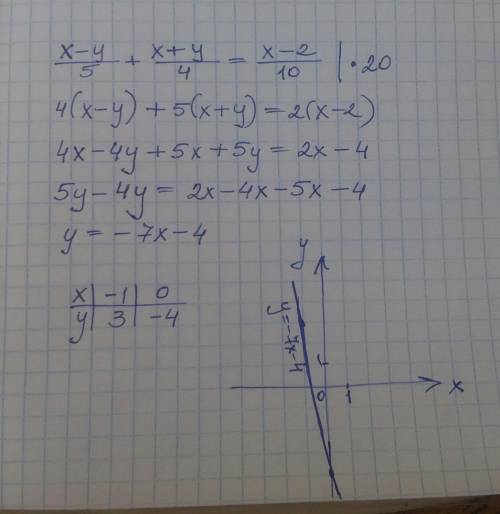 (x-y)/5 + (x+y)/4 = (x-2)/10 | • 20
4(x-y) + 5(x+y) = 2(x-2)
4x-4y+5x+5y = 2x-4
5y-4y = 2x-4x-5x-4
y = -7x-4
x | -1 | 0
y | 3 | -4
y
y=-7x-4
0 1 x